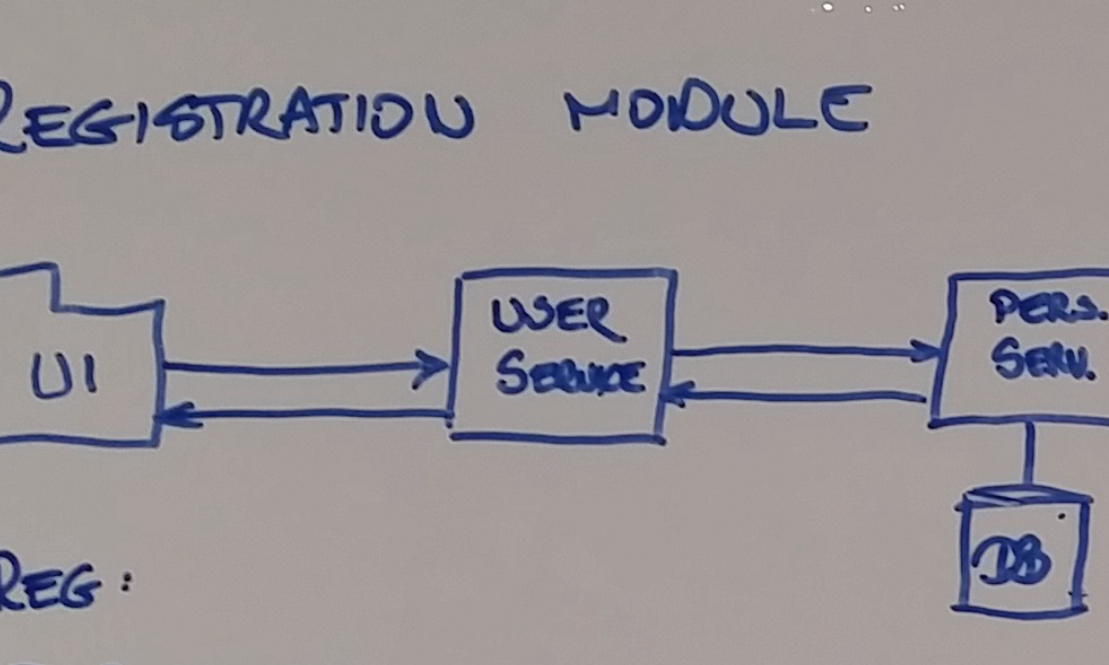 REGISTRATION MODULE
UI
USER
SERVICE
PERS.
SERV.
DB
REG: